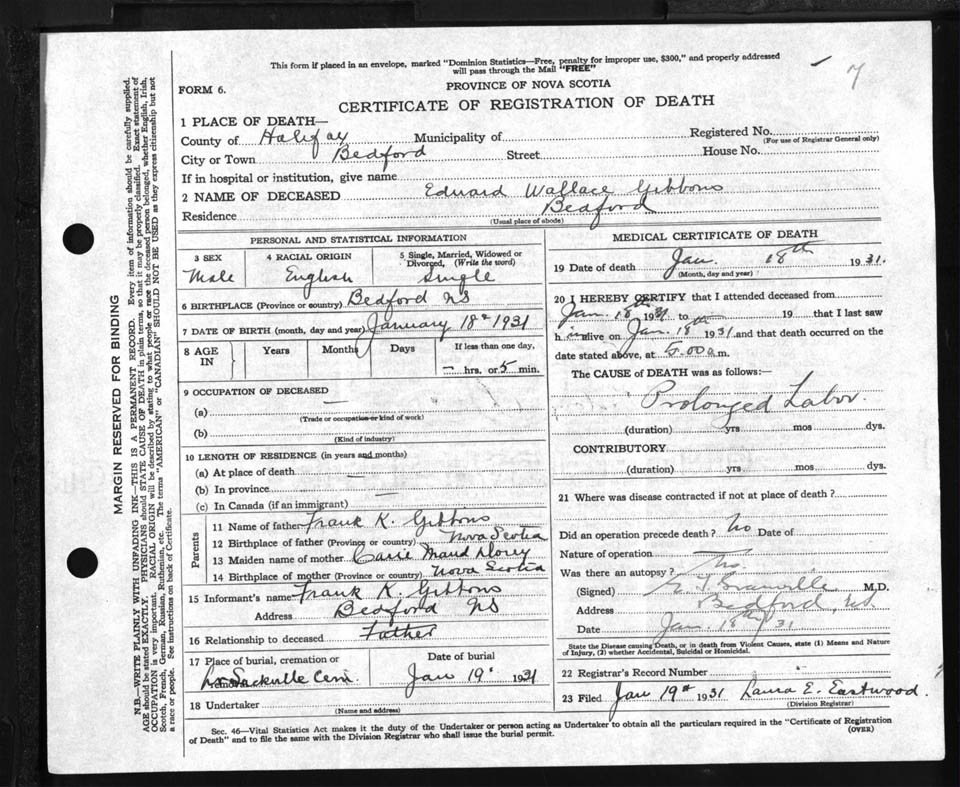 This form if placed in an envelope, marked "Dominion Statistics—Free, penalty for improper use, $300," and properly addressed
will pass through the Mail "FREE"
7
FORM 6.
PROVINCE OF NOVA SCOTIA
CERTIFICATE OF REGISTRATION OF DEATH
1 PLACE OF DEATH—
County of Halifax Municipality of Registered No.
(For use of Registrar General only)
City or Town Bedford Street House No.
If in hospital or institution, give name
2 NAME OF DECEASED Edward Wallace Gibbons
Residence Bedford
(Usual place of abode)
PERSONAL AND STATISTICAL INFORMATION
3 SEX 4 RACIAL ORIGIN 5 Single, Married, Widowed or
Divorced, (Write the word)
Male English Single
6 BIRTHPLACE (Province or country) Bedford NS
7 DATE OF BIRTH (month, day and year) January 18th 1931
8 AGE IN Years Months Days If less than one day,
— hrs. or 5 min.
9 OCCUPATION OF DECEASED —
(a)
(Trade or occupation or kind of work)
(b)
(Kind of industry)
10 LENGTH OF RESIDENCE (in years and months)
(a) At place of death —
(b) In province —
(c) In Canada (if an immigrant)
Parents
11 Name of father Frank K. Gibbons
12 Birthplace of father (Province or country) Nova Scotia
13 Maiden name of mother Carrie Maud
14 Birthplace of mother (Province or country) Nova Scotia
15 Informant's name Frank K. Gibbons
Address Bedford NS
16 Relationship to deceased Father
17 Place of burial, cremation or removal Date of burial
Sackville Cem. Jan 19th 1931
18 Undertaker
(Name and address)
MEDICAL CERTIFICATE OF DEATH
19 Date of death Jan. 18th 1931.
(Month, day and year)
20 I HEREBY CERTIFY that I attended deceased from
Jan. 18th 1931 to 19 that I last saw
h im alive on Jan. 18th 1931 and that death occurred on
date stated above, at 5.00 a.m.
The CAUSE of DEATH was as follows:—
Prolonged Labor.
(duration) yrs mos dys.
CONTRIBUTORY
(duration) yrs mos dys.
21 Where was disease contracted if not at place of death?
Did an operation precede death? No Date of
Nature of operation
Was there an autopsy? No.
(Signed) M.D.
Address Bedford, N.S.
Date Jan. 18th/31
State the Disease causing Death, or in death from Violent Causes, state (1) Means and Nature
of Injury, (2) whether Accidental, Suicidal or Homicidal.
22 Registrar's Record Number
23 Filed Jan 19th 1931 Laura E. Eastwood.
(Division Registrar)
Sec. 46—Vital Statistics Act makes it the duty of the Undertaker or person acting as Undertaker to obtain all the particulars required in the "Certificate of Registration
of Death" and to file the same with the Division Registrar who shall issue the burial permit.
(OVER)
MARGIN RESERVED FOR BINDING
N.B.—WRITE PLAINLY WITH UNFADING INK—THIS IS A PERMANENT RECORD. Every item of information should be carefully supplied.
AGE should be stated EXACTLY. PHYSICIANS should STATE CAUSE OF DEATH in plain terms, so that it may be properly classified. Exact statement of
OCCUPATION is very important. RACIAL ORIGIN will be described by stating to what people or race the deceased person belonged, whether English, Irish,
Scotch, French, German, Russian, Ruthenian, etc. The terms "AMERICAN" or "CANADIAN" SHOULD NOT BE USED as they express citizenship but not
a race or people. See instructions on back of Certificate.